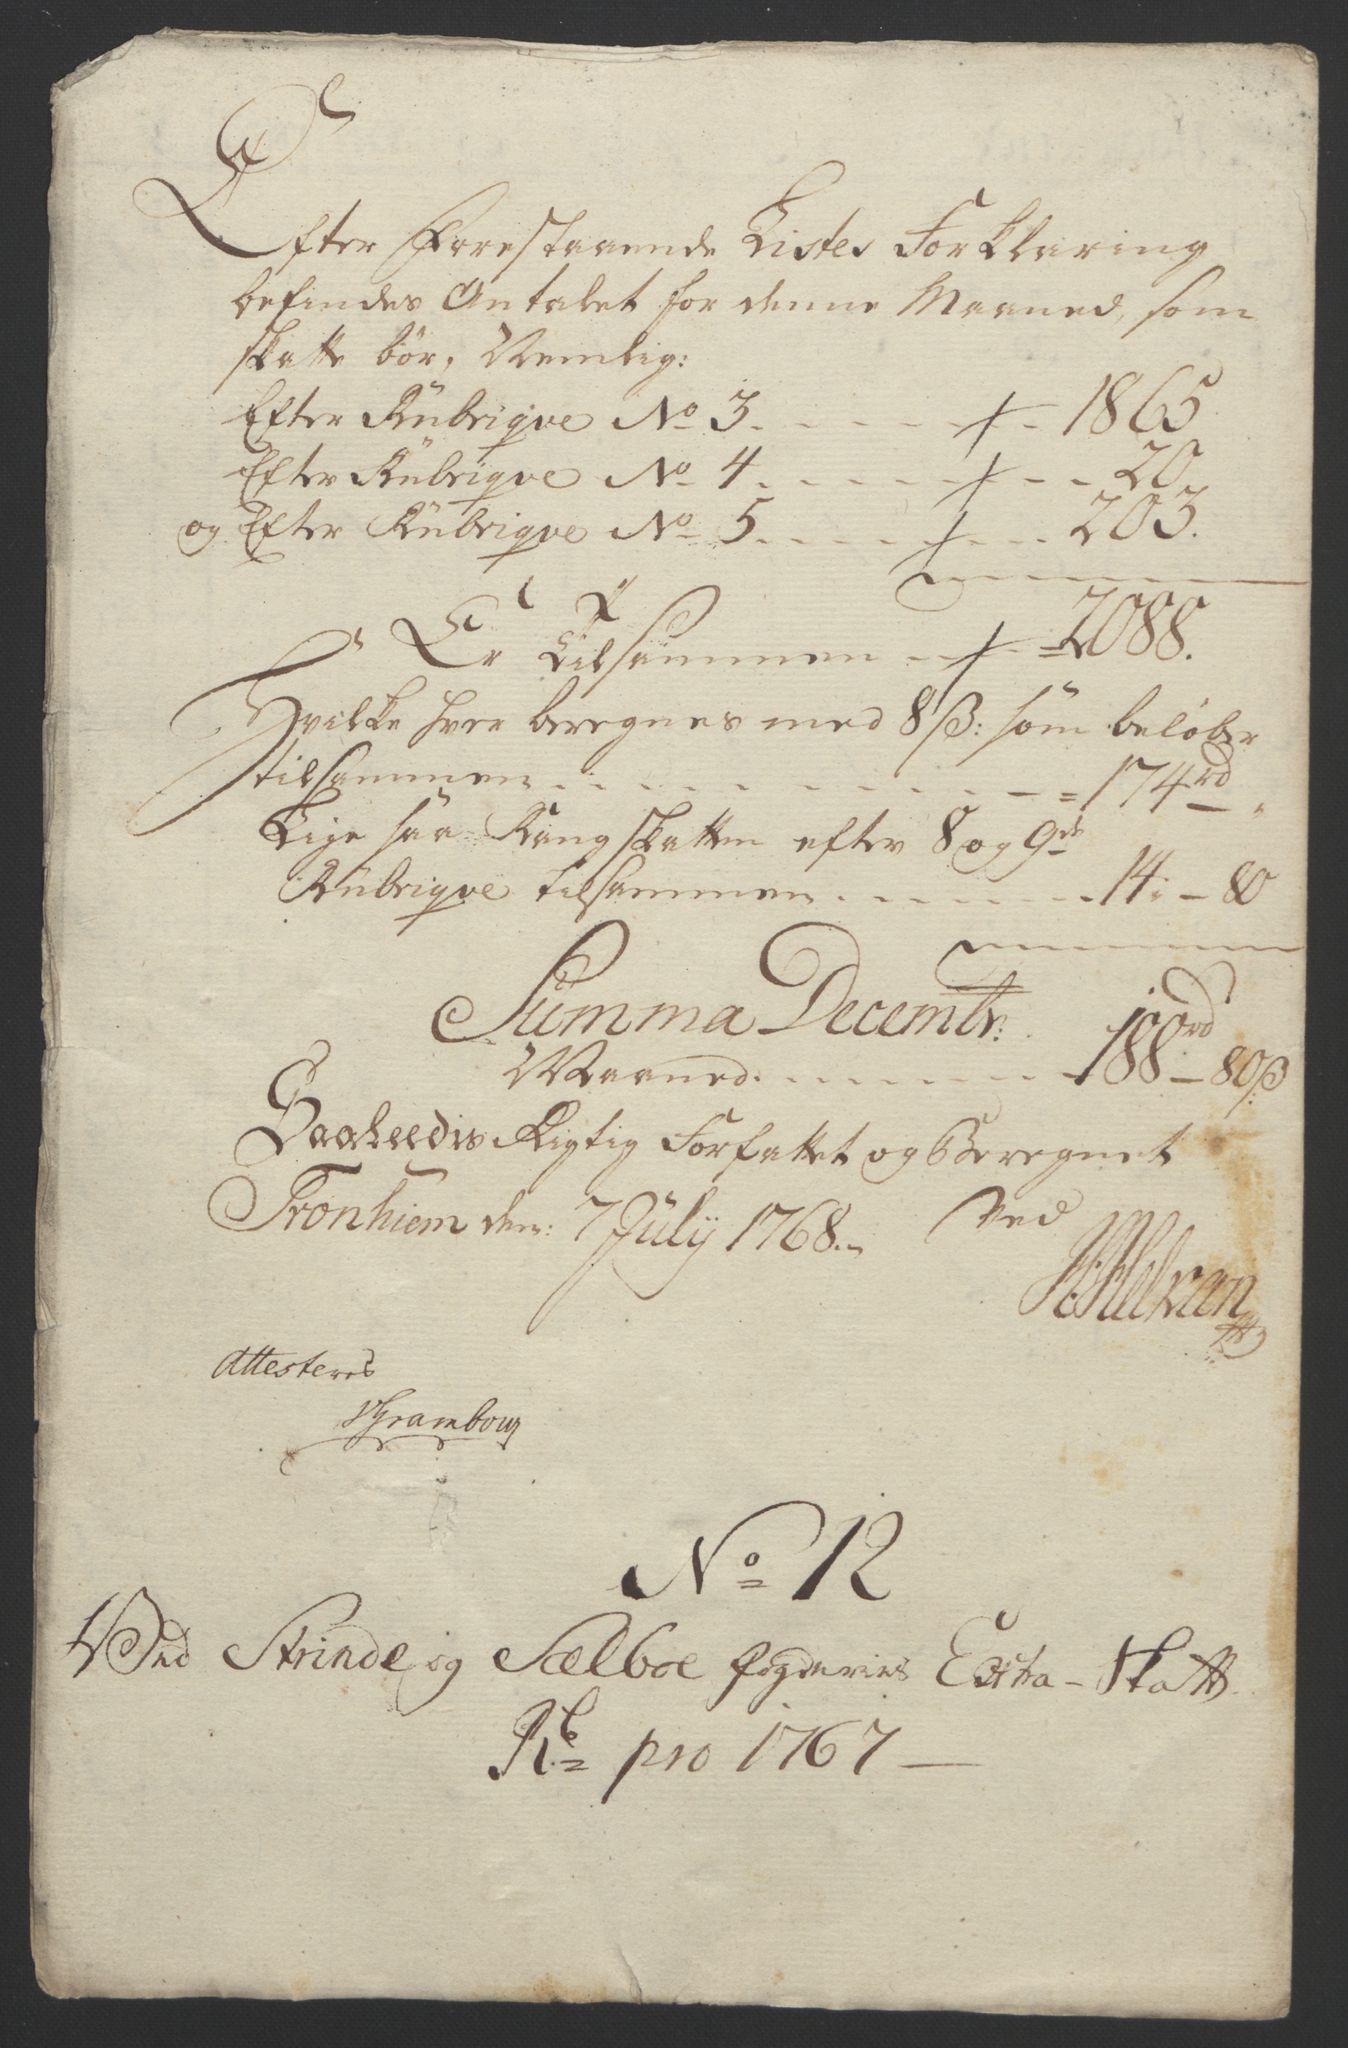 Efter Forestaaende Listes Forklaring
befindes Antalet for denne Maaned, som
skatte bör, Nemlig:
Efter Rübriqve No 3. - - - - 1865
Efter Rübriqve No 4. - - - - 20
og Efter Rübriqve No 5. - - - - 203.
Er Tilsammen - - - = 2088.
Hvilke hver beregnes med 8 ß: som beløber
tilsammen - - - - = 174 rd — „
Lige saa Rang skatten efter 8 og 9de
Rübriqve tilsammen - - - - 14: — 80
Summa Decembr:
Maaned. - - - - 188 rd — 80 ß
Saaleedis Rigtig Forfattet og Beregnet
Tronhiem den: 7 Júlÿ 1768.. Ved
Attesteres
No 12
Ved Strinde og Sælboe fogderies Extra-Skatt
Rb pro 1767 —